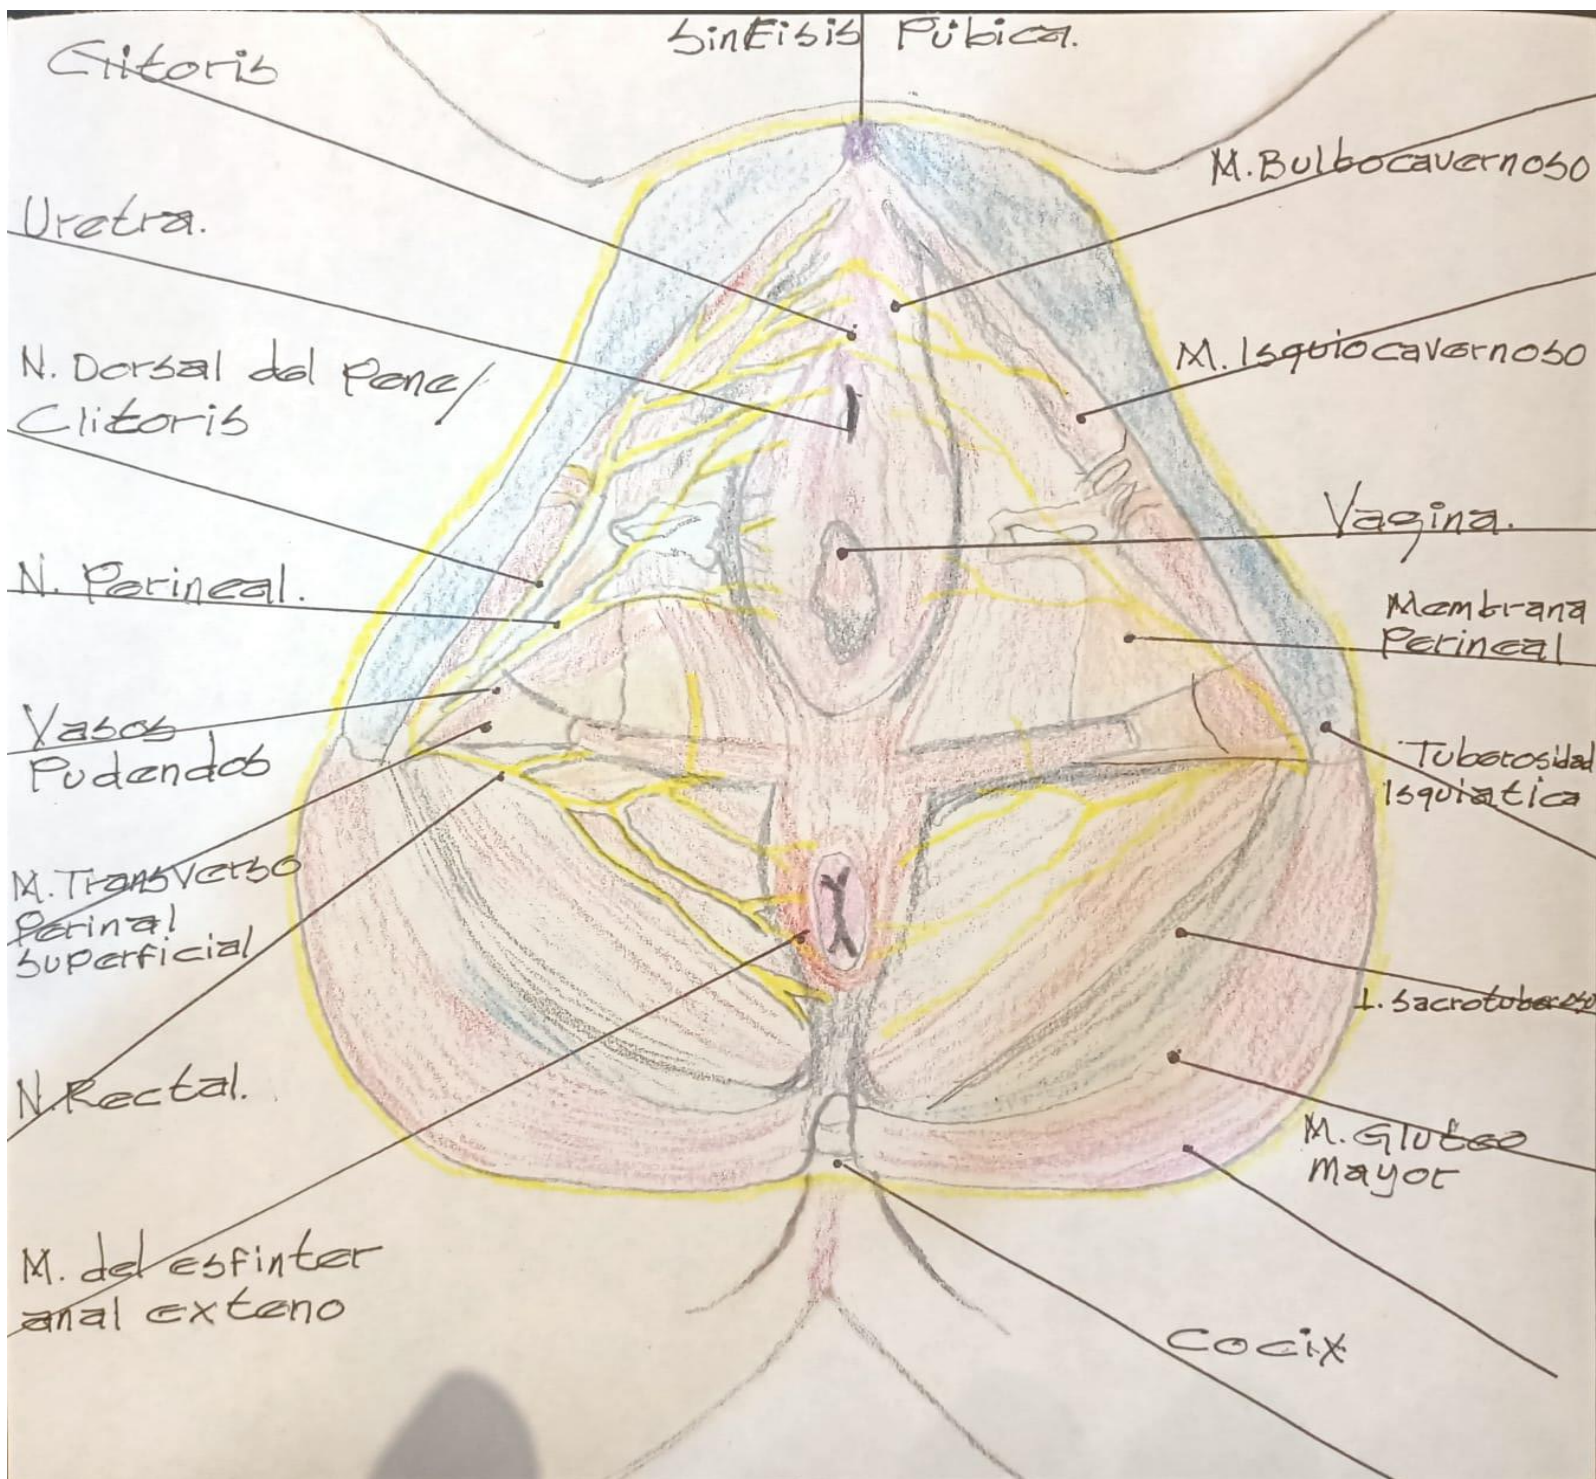 Sinfisis Púbica.
Clitoris
Uretra.
N. Dorsal del Pene/
Clitoris
N. Perineal.
Vasos
Pudendos
M. Transverso
Perinal
Superficial
N. Rectal.
M. del esfinter
anal exteno
M. Bulbocavernoso
M. Isquiocavernoso
Vagina.
Membrana
Perineal
Tuberosidad
Isquiatica
L. Sacrotuberoso
M. Gluteo
mayor
Cocix